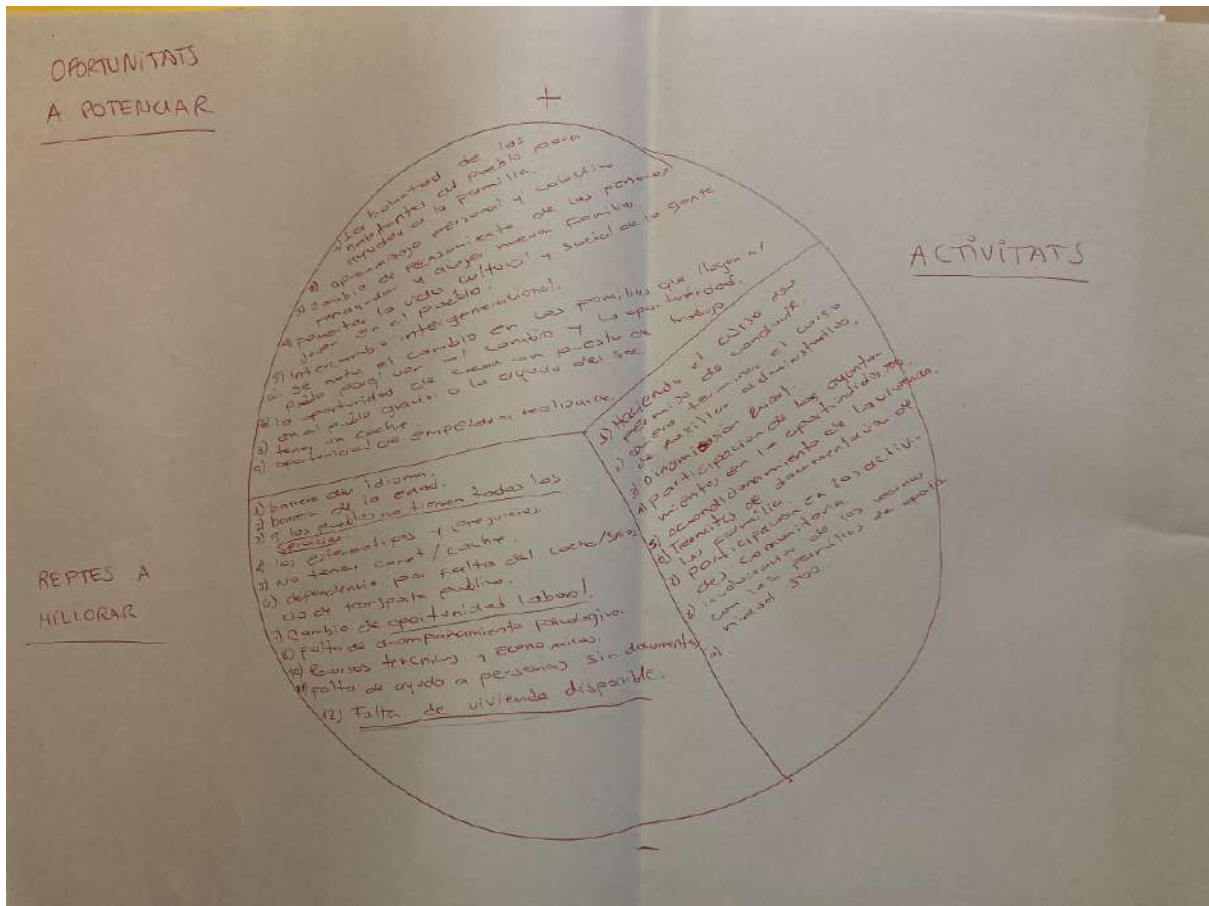 OPORTUNITATS
A POTENCIAR
+
1) La voluntad de los
habitantes del pueblo para
ayudar a la familia
2) aprendizaje personal y colectivo
3) cambio de pensamiento de las personas
y acoger nuevas familias
4) fomentar la vida cultural y social de la gente
joven en el pueblo.
5) intercambio intergeneracional.
6) se nota el cambio en las familias que llegan al
pueblo ven el cambio y la oportunidad.
la oportunidad de un puesto de trabajo
en el pueblo a la ayuda del
8) tener un coche
9) oportunidad de empezar a realizarse.
ACTIVITATS
1) Haciendo el curso
permiso de conducir.
2) el curso
de auxiliar administrativo.
3) Dinamización rural.
4) participación de los ayunta-
mientos en la
5) acondicionamiento de la vivienda.
6) Tramites de documentación de
las familia.
7) participación en las activi-
des comunitaria.
8) involucración de los vecinos
con las familias de apoyo
9).
REPTES A
MILLORAR
1) barrera del idioma.
2) barrera de la edad.
3) q los pueblos no tienen todos los
servicios
4) los estereotipos y prejuicios
5) No tener carnet / coche.
6) dependencia por falta del coche/
de transporte publico.
7) Cambio de oportunidad laboral.
8) Falta de acompañamiento psicologico.
10) Recursos tecnicos y economicos.
11) falta de ayuda a personas sin documents
12) Falta de vivienda disponible.
-